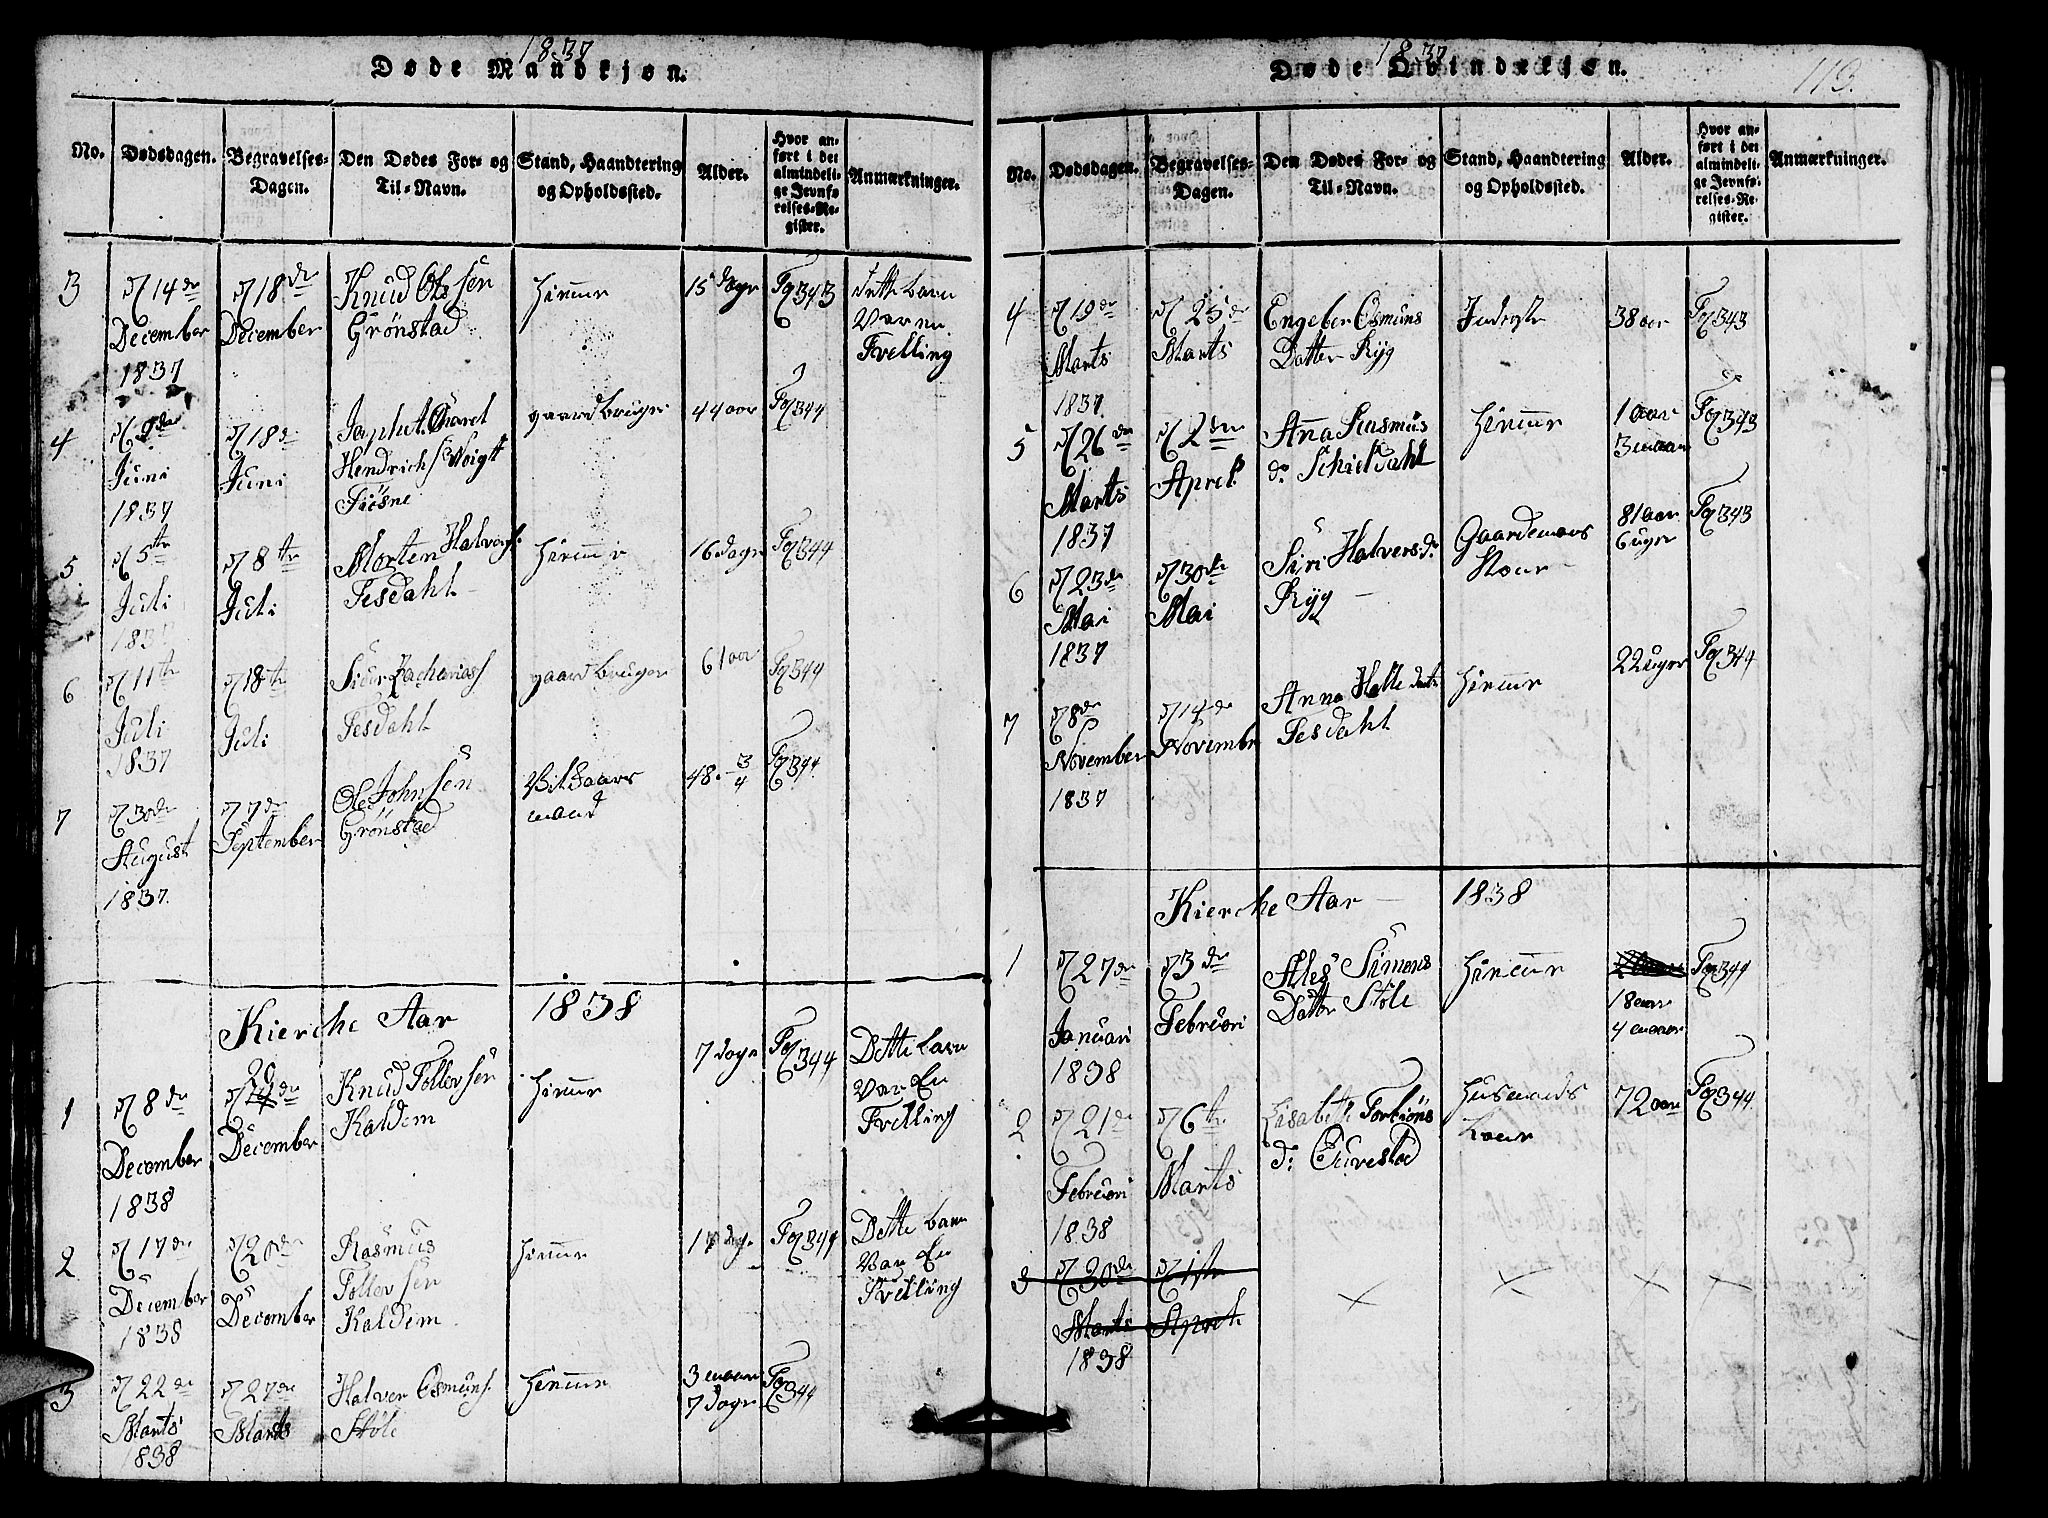 1837
Døde Mandkjøn.
No. Dødsdagen. Begravelses-Dagen. Den Dødes For- og Til-Navn. Stand, Haandtering og Opholdssted. Alder. Hvor anført i det almindelige Jevnførelses-Register. Anmærkninger.
3 14de December 1837 18de December Knud Olssen Grönstad 15 Fol 343 Dette barn Var en Tvelling
4 9de Juni 1837 18de Juni Hendrich Voigtt gaardbruger 44 aar Fol 344
5 5te Juli 1837 8te Juli Morten Halvors Tesdahl 16 dage Fol 344
6 11te Juli 1837 18te Juli Zachariass Tesdahl gaardbruger 61 aar Fol 344
7 30de August 1837 7de September Ole Johnsen Grönstad 48 3/4 Fol 344
Kierche Aar 1838
1 8de December 1838 20de December Knud Tollevsen Kaldem 7 dage Fol 344 Dette barn Var En Tvelling
2 17de December 1838 20de December Rasmus Tollevsen Kaldem Fol 344 Dette barn Var En Tvelling
3 22de Marts 1838 27de Marts Halver Osmuns. Stöle 3 maan 7 dage Fol 344
1837
Døde Qvindekjøn.
113.
No. Dødsdagen. Begravelses-Dagen. Den Dødes For- og Til-Navn. Stand, Haandtering og Opholdssted. Alder. Hvor anført i det almindelige Jevnførelses-Register. Anmærkninger.
4 19de Marts 1837 25de Marts Engeber Osmuns Datter Ryg Inderste 38 aar Fol 343
5 26de Marts 1837 2den April Anna Rasmus d. Schieldahl 1 aar 3 maan Fol 343
6 23de Mai 1837 30de Mai Siri Halvers d. Ryg Gaardemans 81 aar 6 uger Fol 343
7 8de November 1837 14de November Anna Helle dat. Tesdahl 22 uger Fol 344
Kierche Aar 1838
1 27de Januari 1838 3de Februari Simons Datter Stöle 18 aar 4 maan Fol 344
2 21de Februari 1838 6te Marts Lisabeth Torbiöns d. Husmands 72 aar Fol 344
3 30de Marts 1838 1ste April